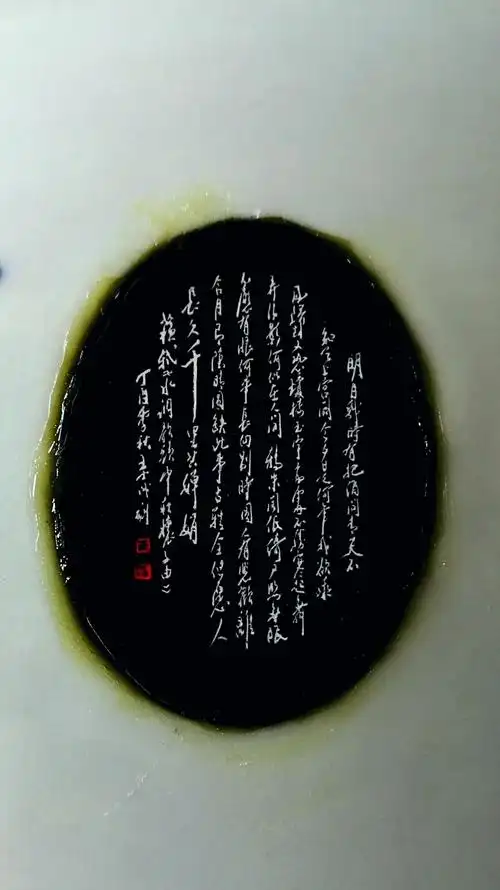 明月几時有把酒问青天不
知天上宫阙今夕是何年我欲乘
風歸去又恐瓊樓玉宇高處不勝寒起舞
弄清影何似在人间 转朱阁低绮户照無眠
不應有恨何事長向别時圆人有悲歡離
合月有陰晴圆缺此事古難全但愿人
長久千里共婵娟
蘇軾水调歌頭中秋懷(子由)
丁酉季秋 刻